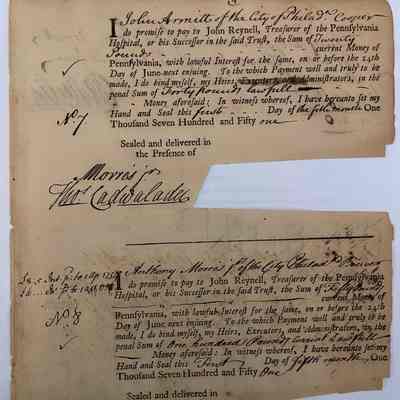 I John Arnett of the City of Philada. Cooper
do promise to pay to John Reynell, Treasurer of the Pennsylvania
Hospital, or his Successor in the said Trust, the Sum of Twenty
Pounds current Money of
Pennsylvania, with lawful Interest for the same, on or before the 24th
Day of June next ensuing. To the which Payment well and truly to be
made, I do bind myself, my Heirs, Executors & Administrators, in the
penal Sum of Forty Pounds lawfull
Money aforesaid: In witness whereof, I have hereunto set my
No. 7
Hand and Seal this first Day of the fifth month One
Thousand Seven Hundred and Fifty one
Sealed and delivered in
the Presence of
Morris jr
Thos. Cadwalader
I Anthony Morris jr of the City Philada
do promise to pay to John Reynell, Treasurer of the Pennsylvania
Hospital, or his Successor in the said Trust, the Sum of Fifty Pounds
current Money of
Pennsylvania, with lawful Interest for the same, on or before the 24th
No. 8
Day of June next ensuing. To the which Payment well and truly to be
made, I do bind myself, my Heirs, Executors, and Administrators, in the
penal Sum of One hundred Pounds Lawfull
Money aforesaid: In witness whereof, I have hereunto set my
Hand and Seal this first Day of fifth month One
Thousand Seven Hundred and Fifty One
Sealed and delivered in